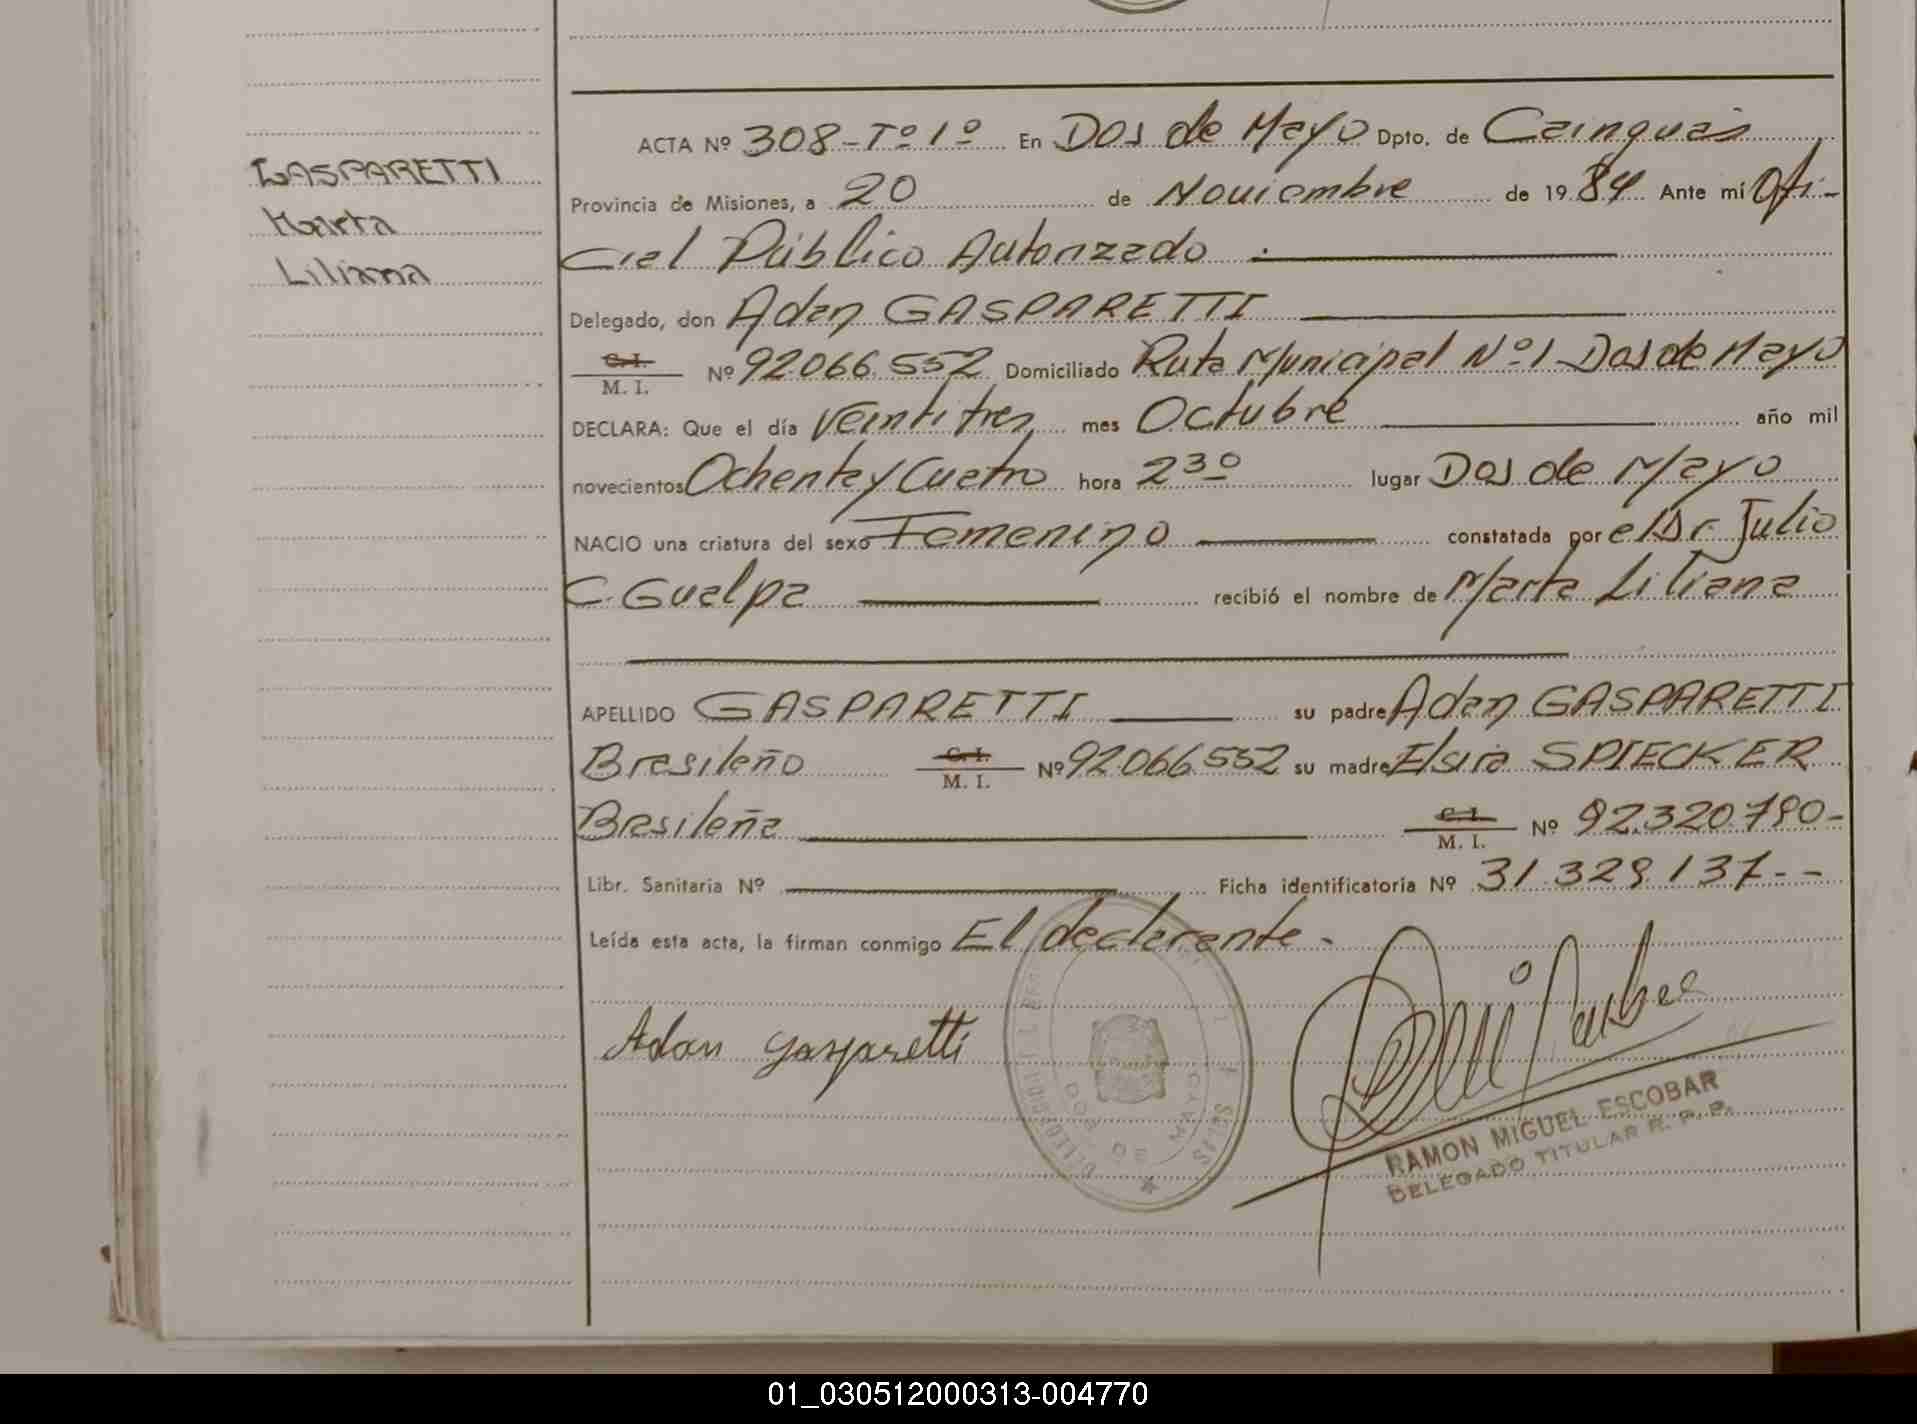 GASPARETTI
Marta
Liliana
ACTA Nº 308-Tº 1º En Dos de Mayo Dpto. de Cainguás
Provincia de Misiones, a 20 de Noviembre de 1984 Ante mí Ofi-
cial Público Autorizado.
Delegado, don Adan GASPARETTI
C.I. M. I. Nº 92.066.552 Domiciliado Ruta Municipal Nº 1-Dos de Mayo
DECLARA: Que el día Veintitres mes Octubre año mil
novecientos Ochenta y Cuatro hora 2 30 lugar Dos de Mayo
NACIO una criatura del sexo Femenino constatada por el Dr. Julio
C. Gualpa recibió el nombre de Marta Liliana
APELLIDO GASPARETTI su padre Adan GASPARETTI
Brasileño C.I. M. I. Nº 92.066.552 su madre Elsira SPIECKER
Brasileña C.I. M. I. Nº 92.320.790-
Libr. Sanitaria Nº Ficha identificatoria Nº 31.329.137--
Leída esta acta, la firman conmigo El declarante-
Adan Gasparetti
DOS DE MAYO
RAMON MIGUEL ESCOBAR
DELEGADO TITULAR R. P. P.
01_030512000313-004770